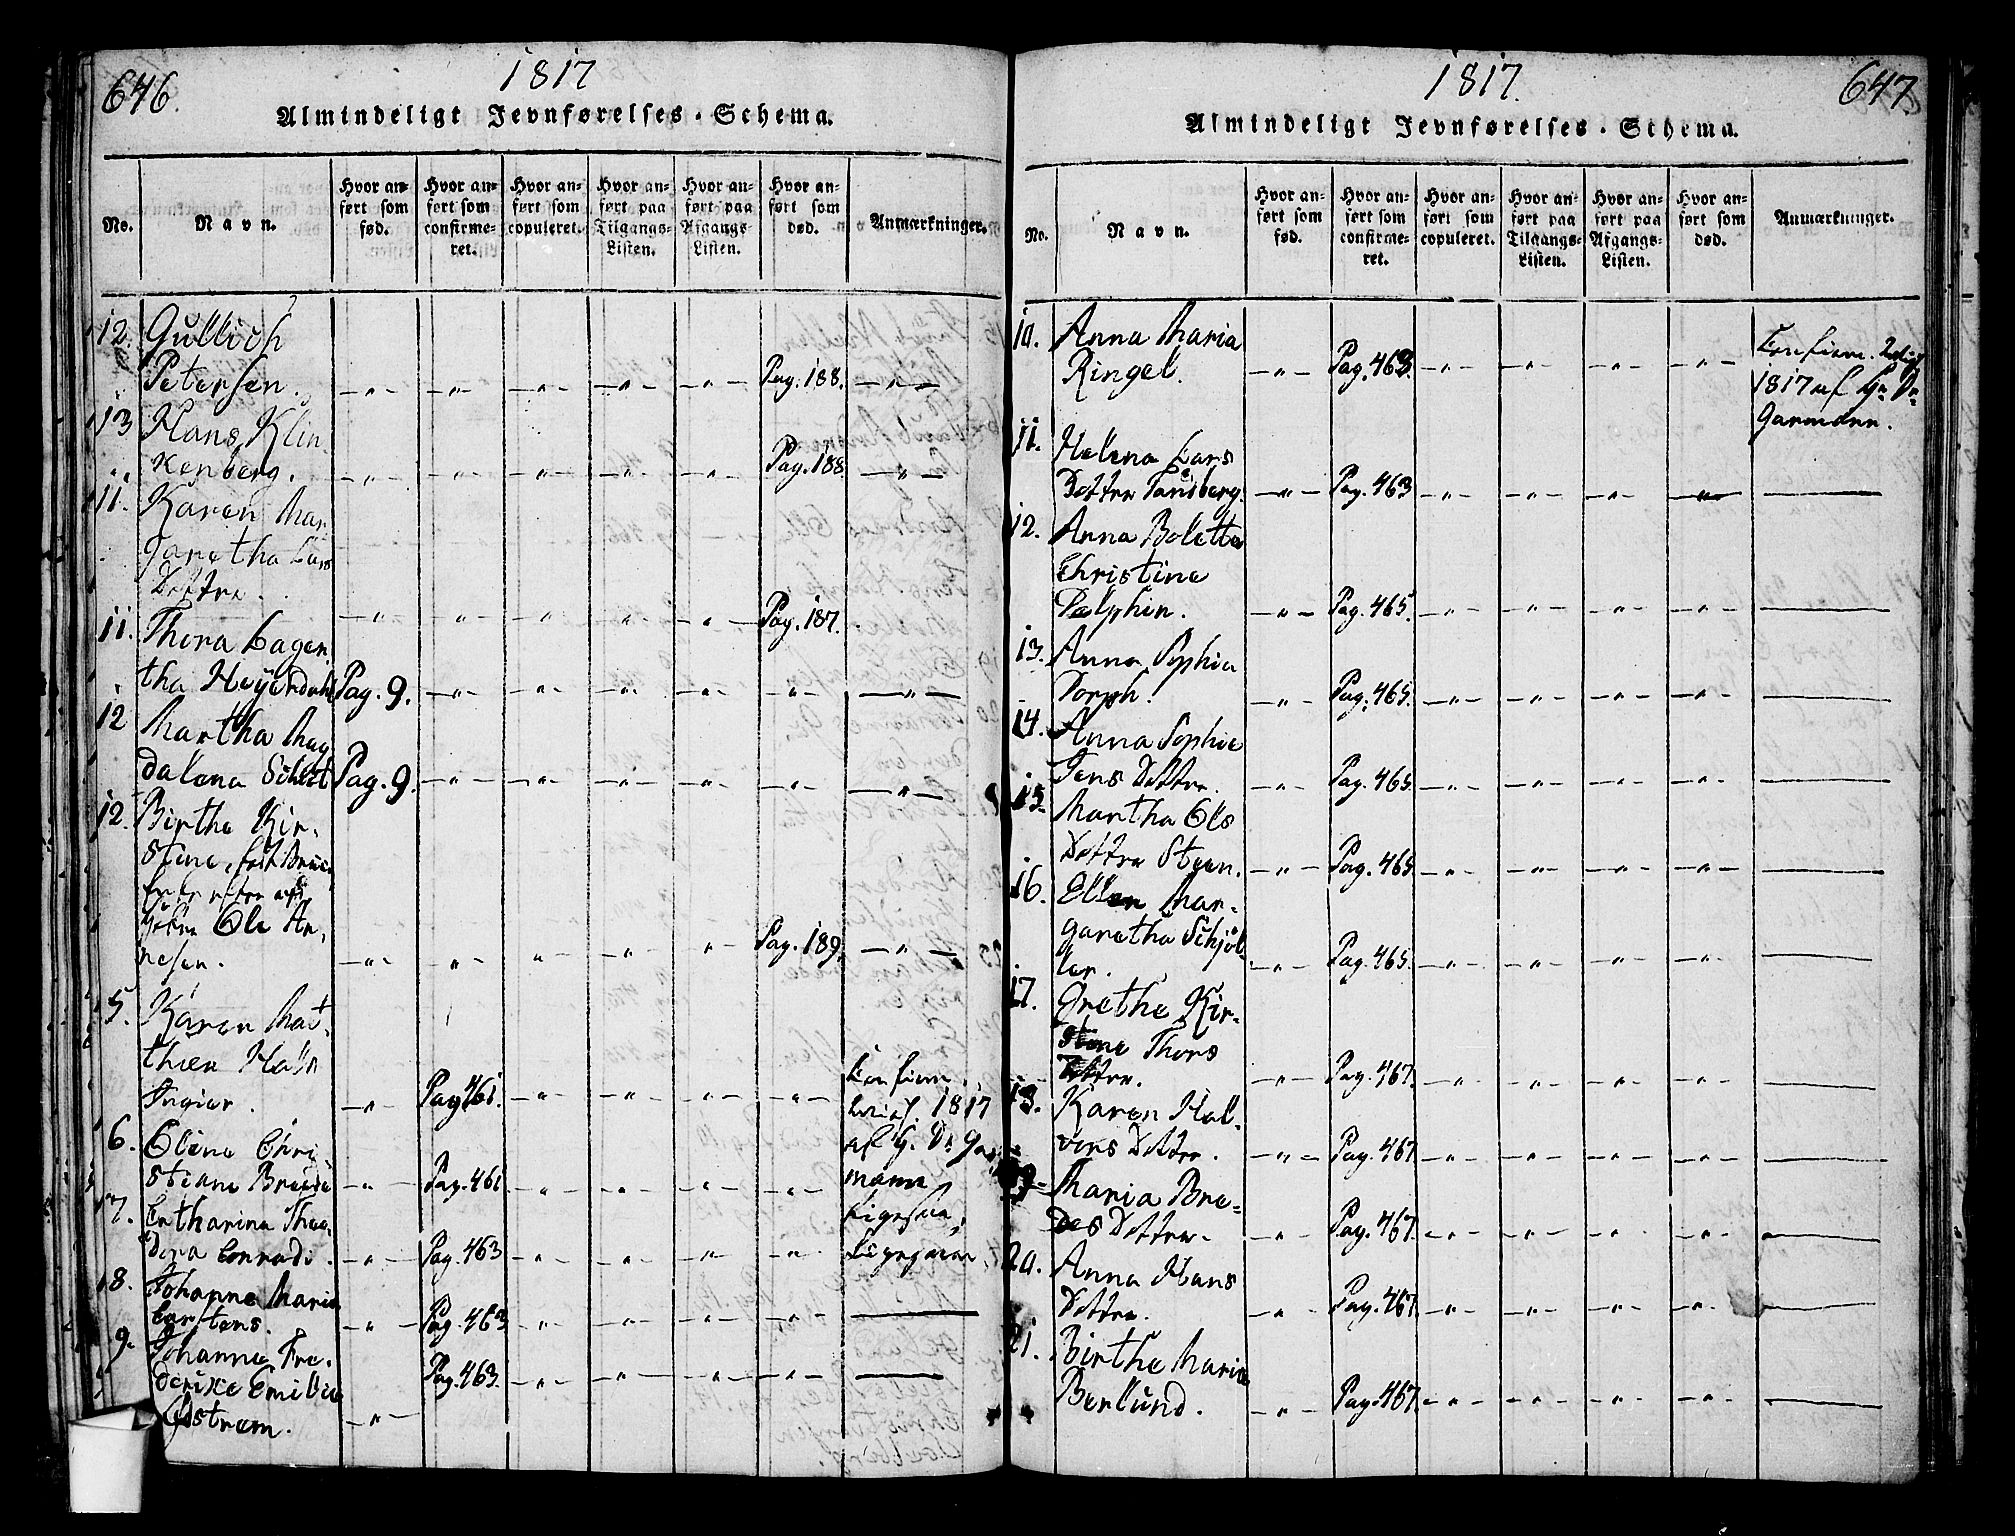 646.
1817
Almindeligt Jevnførelses-Schema.
No.
Navn.
Hvor anført som fød.
Hvor anført som confirmeret.
Hvor anført som copuleret.
Hvor anført paa Tilgangs-Listen.
Hvor anført paa Afgangs-Listen.
Hvor anført som død.
Anmærkninger.
12. Gullich
Petersen. Pag. 188.
13 Hans Klin
kenberg. Pag. 188
11. Karen Mar
garetha Lars
Dottre. Pag. 187.
11. Thora Lagen
tha Heyerdahl Pag. 9.
12 Martha Mag
dalena Pag. 9.
12. Birthe Kir-
stine,
Ole Ar-
nesen. Pag. 189.
5. Karen Mat-
thea
Pag. 461.
Confirm. 1817
af
mann
6. Oline Chri
stiane Pag. 461
7. Catharina Theo
dora Conradi. Pag. 463
Ligesaa
8. Johanne Maria
Carstens. Pag. 463
9. Johanne Fre-
derike Emilie
Pag. 463.
1817.
647
Almindeligt Jevnførelses-Schema.
No.
Navn.
Hvor anført som fød.
Hvor anført som confirmeret.
Hvor anført som copuleret.
Hvor anført paa Tilgangs-Listen.
Hvor anført paa Afgangs-Listen.
Hvor anført som død.
Anmærkninger.
10. Anna Maria
Ringel. Pag. 463.
Confirm.
1817 af
Garmann.
11. Helena Lars
Dottre Pag. 463
12. Anna Bolette
Christine
Dolphin. Pag. 465.
13. Anna Sophia
Dorph. Pag. 465.
14. Anna Sophie
Jens Dottre. Pag. 465.
15. Martha Ols
Dottre Steen. Pag. 465
16. Ellen Mar-
garetha Schjöl
ler. Pag. 465.
17. Grethe Kir-
stine Thors
Dottre. Pag. 467.
18. Karen Hal-
vors Dottre. Pag. 467
19. Maria Bre-
des Dottre. Pag. 467.
20. Anna Hans
Dottre. Pag. 467.
21. Birthe Maria
Berlund. Pag. 467.